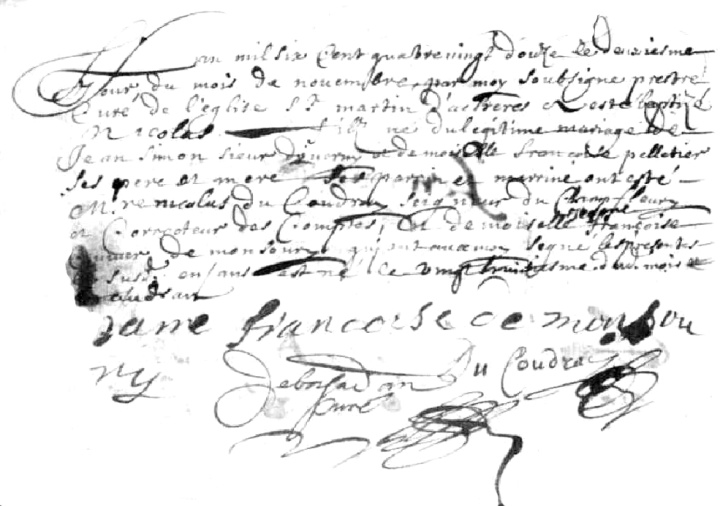 L'an mil six Cent quatrevingt douze le deuxiesme
Jour du mois de novembre par moy soubsigné prestre
Curé de l'Eglise St martin d'asnieres a esté baptizé
Nicolas fils né du legitime mariage de
Jean simon sieur et demoiselle francoise pelletier
ses pere et mere son parin et marrine ont esté
Mre nicolas du Coudray seigneur du Champfleury
et Correcteur des Comptes, et demoiselle françoise
de monsoury qui ont avec moy signé les presentes
susdt enfans est né le vingt troisiesme dud. mois
janne francoise de monsou
ry
Du Coudray
Curé